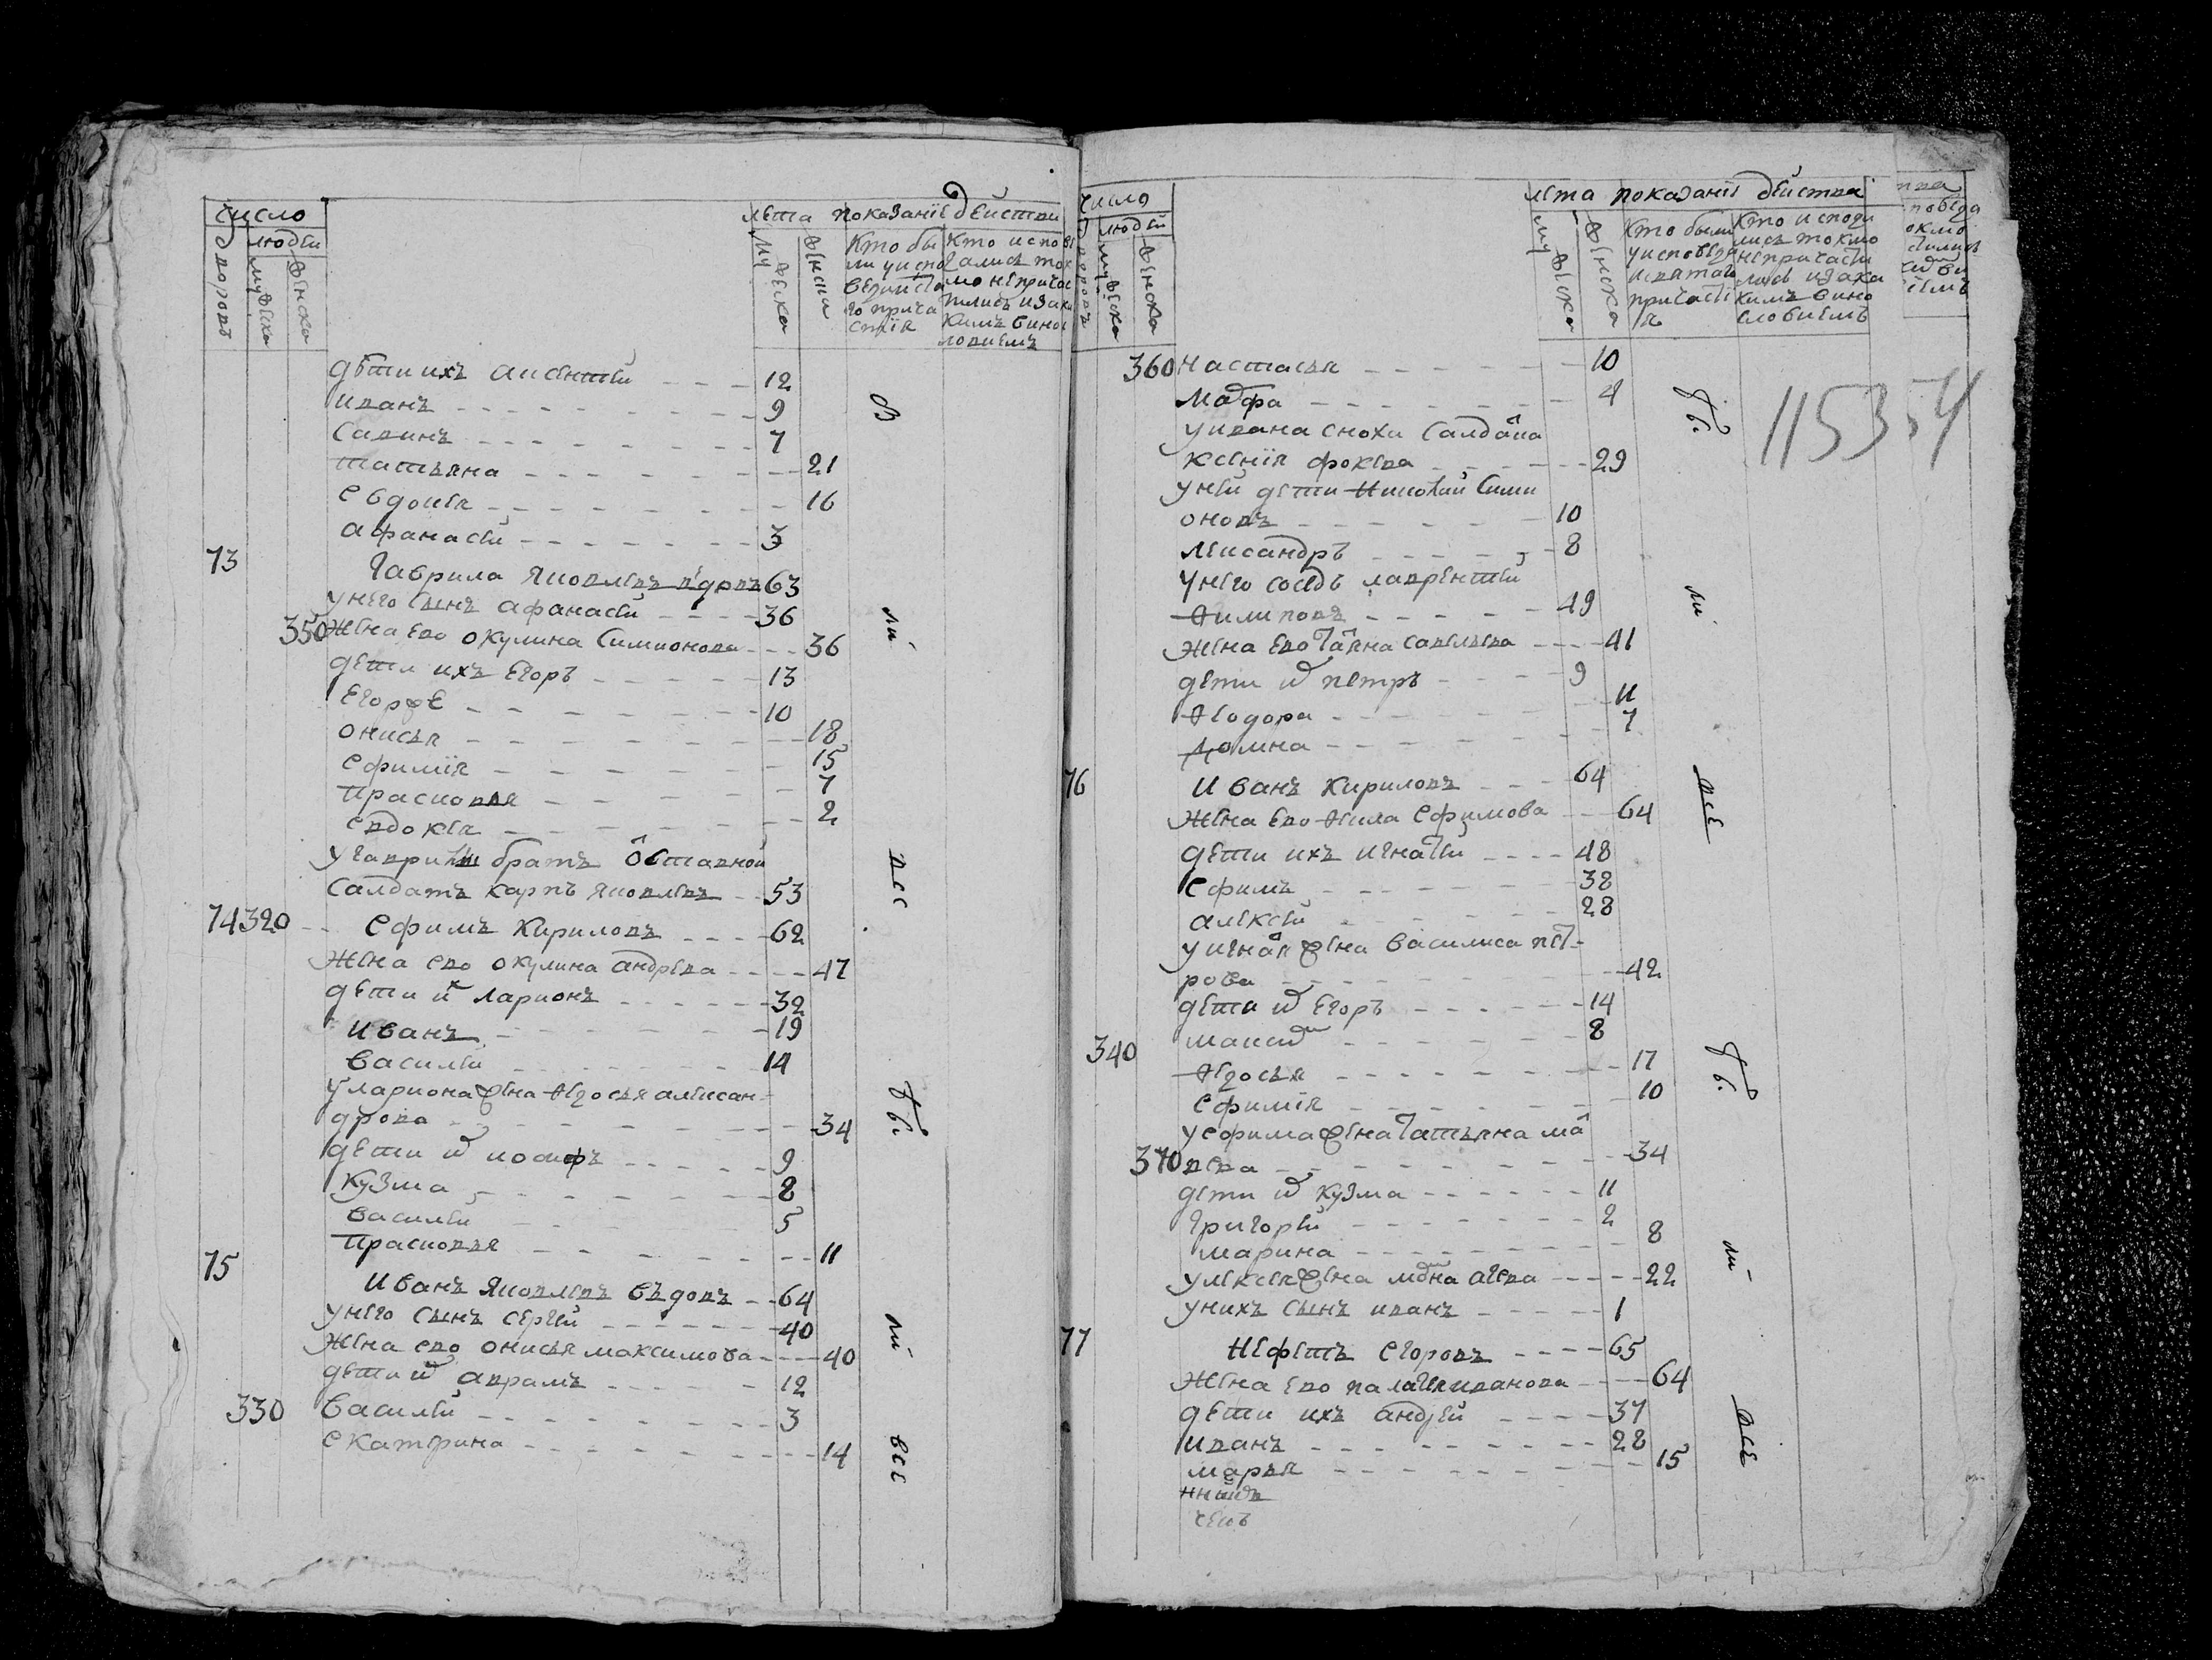 число
людей
дворовъ
мужеска
женска
лета показаніе действи
му жеска
женски
Кто бы ли у испо ведии ста го прича стія
Кто испове далися ток мо не причас тились и заки кимъ винос ловиемъ
дѣти ихъ Аиентей 12
иванъ 9
Савинъ 7
татьяна 21
Евдокея 16
афанасей 3
73
Гаврила Яковлевъ вдовъ 63
у него сынъ афанасей 36
350 Жена ево окулина Симионова 36
дети ихъ Егоръ 13
Егорже 10
онисья 18
Ефимия 15
прасковья 7
евдокея 2
у гаврилы братъ ôставной
Салдатъ карпъ Яковлевъ 53
74 320 Ефимъ Кириловъ 62
Жена ево окулина андрѣева 47
дети ихъ ларионъ 32
Иванъ 19
Василей 14
у лариона жена Ѳедосья алексан-
дрова 34
дети ихъ иосифъ 9
Кузма 8
Василей 5
прасковья 11
75
Иванъ Яковлевъ въдовъ 64
у него сынъ сергей 40
Жена ево онисья максимова 40
дети ихъ аврамъ 12
330 Василей 3
Екатерина 14
ли
все
бы
ли
все
число
людей
мужеска
женска
лета показаніе действа
мужеска
женска
Кто были у исповеди и святаго причасти я
Кто исповедалися токмо не причасти лись и зака кимъ вино словиемъ
360 Настасья 10
Марфа 4
у ивана снохи Салдâка
Ксения фокева 29
у ней дети Николай Сими
оновъ 10
Лександръ 8
у него соседъ лаврентей
Филиповъ 49
Жена ево Таяна савельева 41
дети ихъ петръ 9
Ѳеодора 11
Домна 7
76 Иванъ Кириловъ 64
Жена ево Ѳекла Ефимова 64
дети ихъ игнатей 48
Ефимъ 38
алексей 28
у игнатя жена Василиса пет-
рова 42
дети ихъ Егоръ 14
340 максимъ 8
Ѳедосья 17
Ефимия 10
у ефима жена Татьяна мâ
370 вева 34
дети ихъ кузма 11
григорей 2
марина 8
у алексея жена марина агева 22
у нихъ сынъ иванъ 1
77 Нефетъ Егоровъ 65
Жена ево палагея иванова 64
дети ихъ андрей 37
иванъ 28
марья 15
бы
ли
все
бы
ли
все
115354